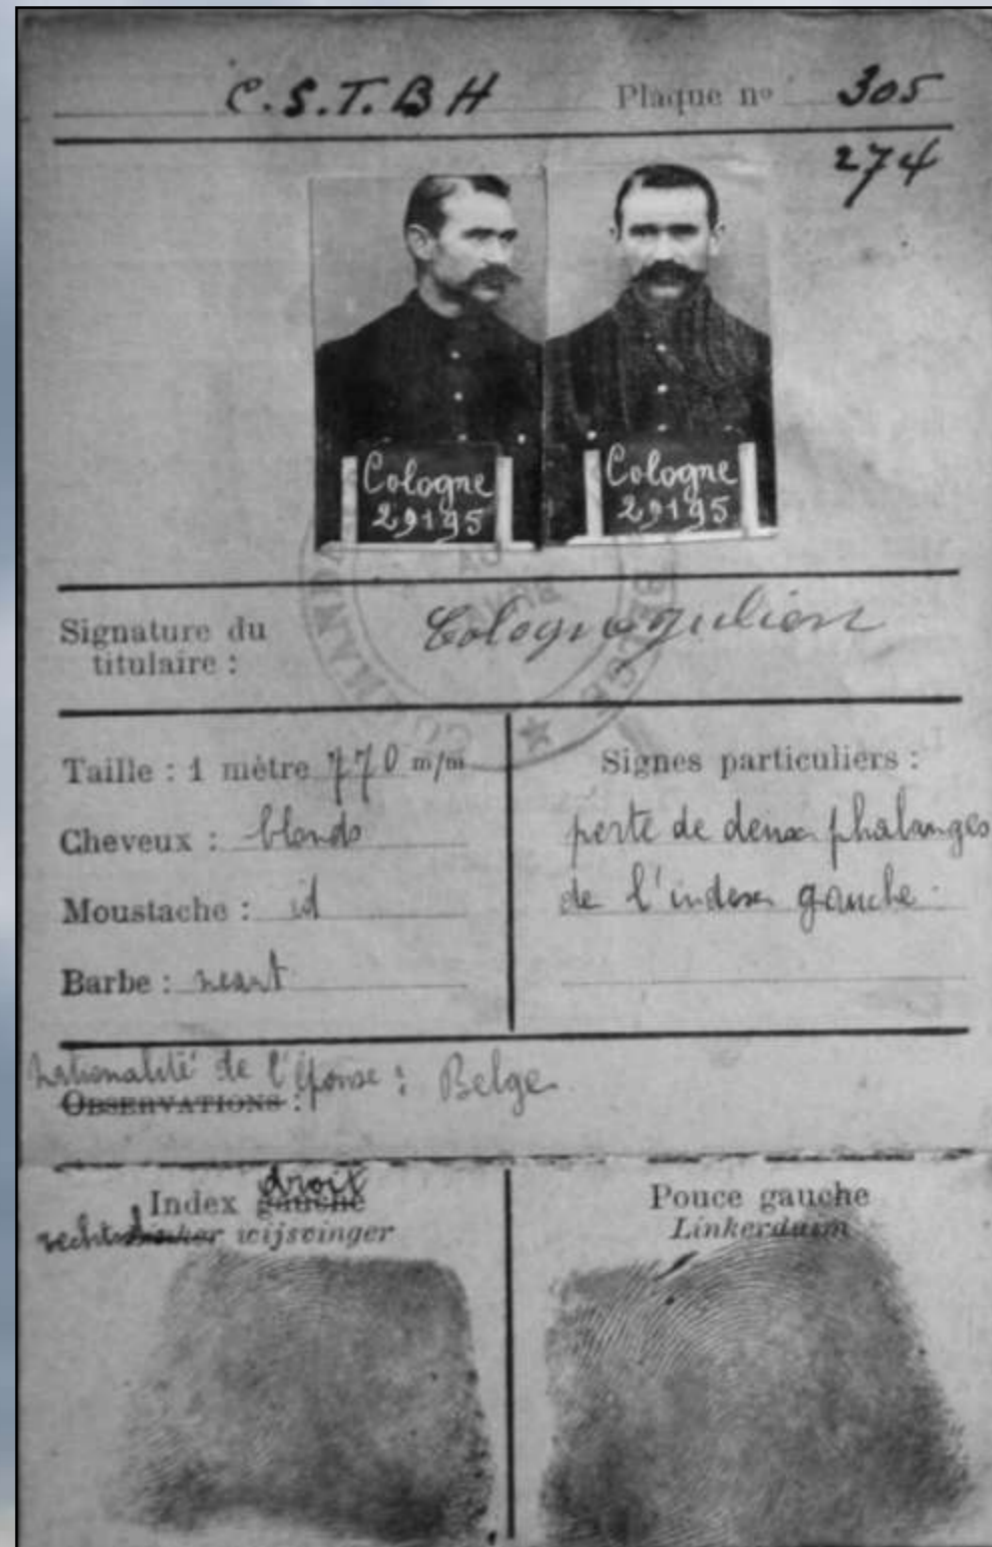 C.S.T.B H Plaque nº 305
274
Cologne
29195
Cologne
29195
Signature du
titulaire :
Cologne Julien
Taille : 1 mètre 770 m/m
Cheveux : blonds
Moustache : id
Barbe : neant
Signes particuliers :
perte de deux phalanges
de l'index gauche
Nationalité de l'épouse : Belge
OBSERVATIONS :
droit
Index gauche
rechter linker wijsvinger
Pouce gauche
Linkerduim